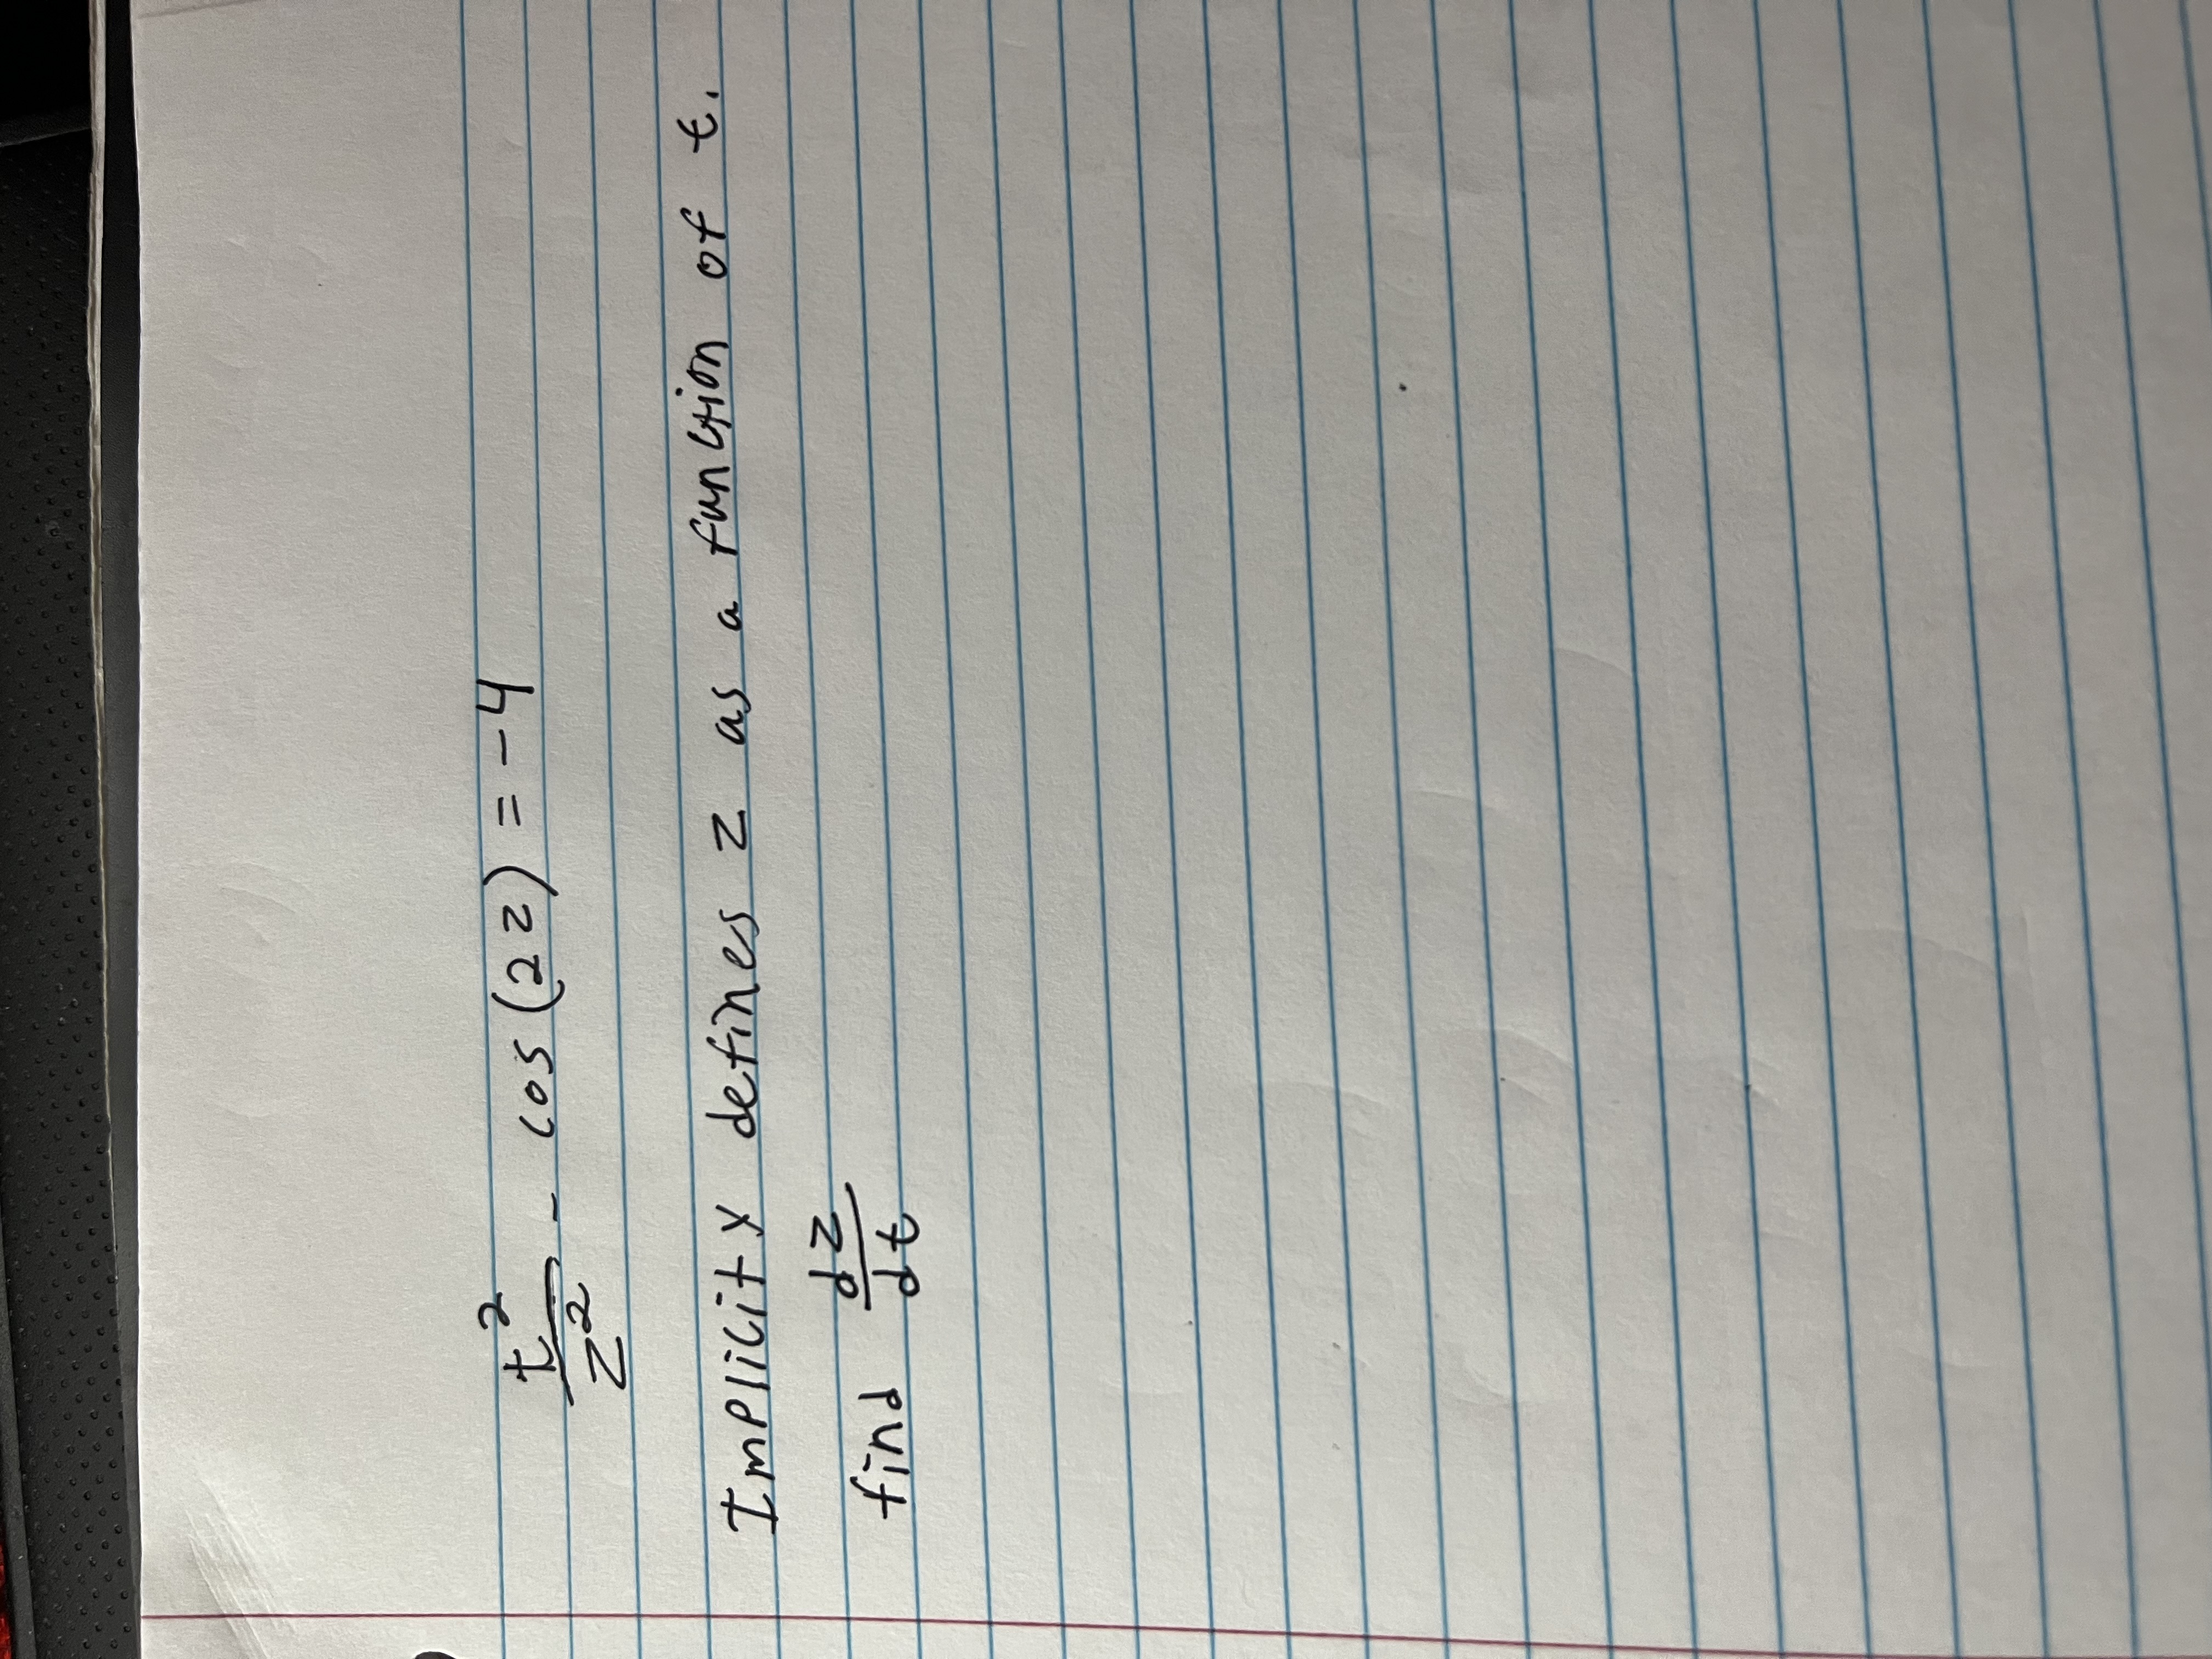 t²/z² - cos(2z) = -4
Implicity defines z as a function of t.
find dz/dt